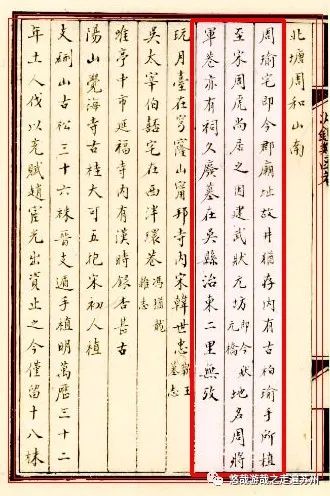 北塘周和山南
周瑜宅即今郡廟址故井猶存內有古柏瑜手所植
至宋周虎尚居之因建武狀元坊即今狀元橋地名周將
軍巷亦有祠久廢墓在吳縣治東二里無攷
玩月臺在穹窿山甯邦寺內宋韓世忠蘄王墓志
吳太宰伯嚭宅在西泮環巷馮龍雜志
唯亭中市延福寺內有漢時銀杏甚古
陽山覺海寺古桂大可五抱宋初人植
支硎山古松三十六株晉支遁手植明萬曆三十二
年土人伐以莞賦趙宦光出貲止之今僅留十八株
悠哉游哉之走遍苏州